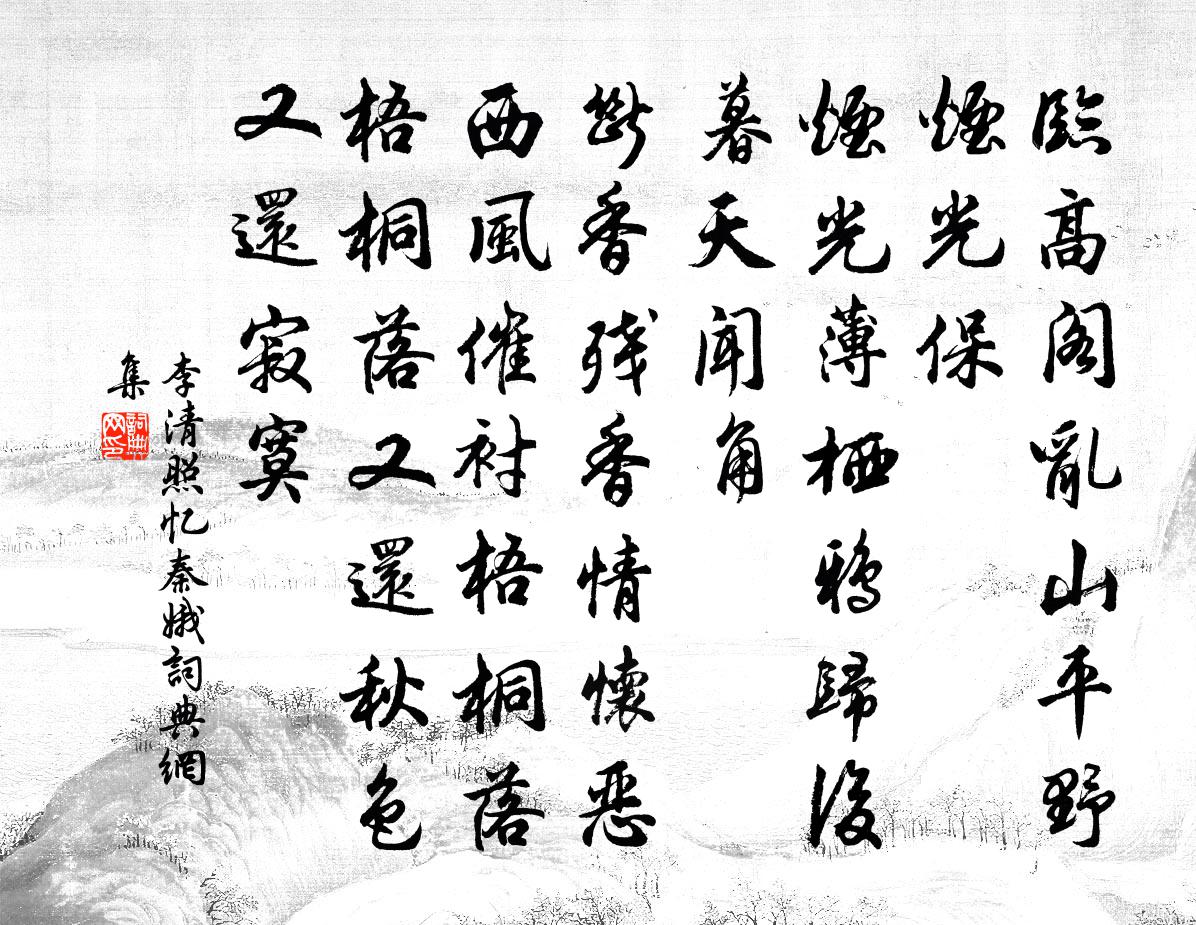 臨高阁亂山平野
煙光保
煙光薄栖鴉歸後
暮天聞角
斷香残香情懷恶
西風催衬梧桐落
梧桐落又還秋色
又還寂寞
李清照忆秦娥詞典網
集
詞典
网印